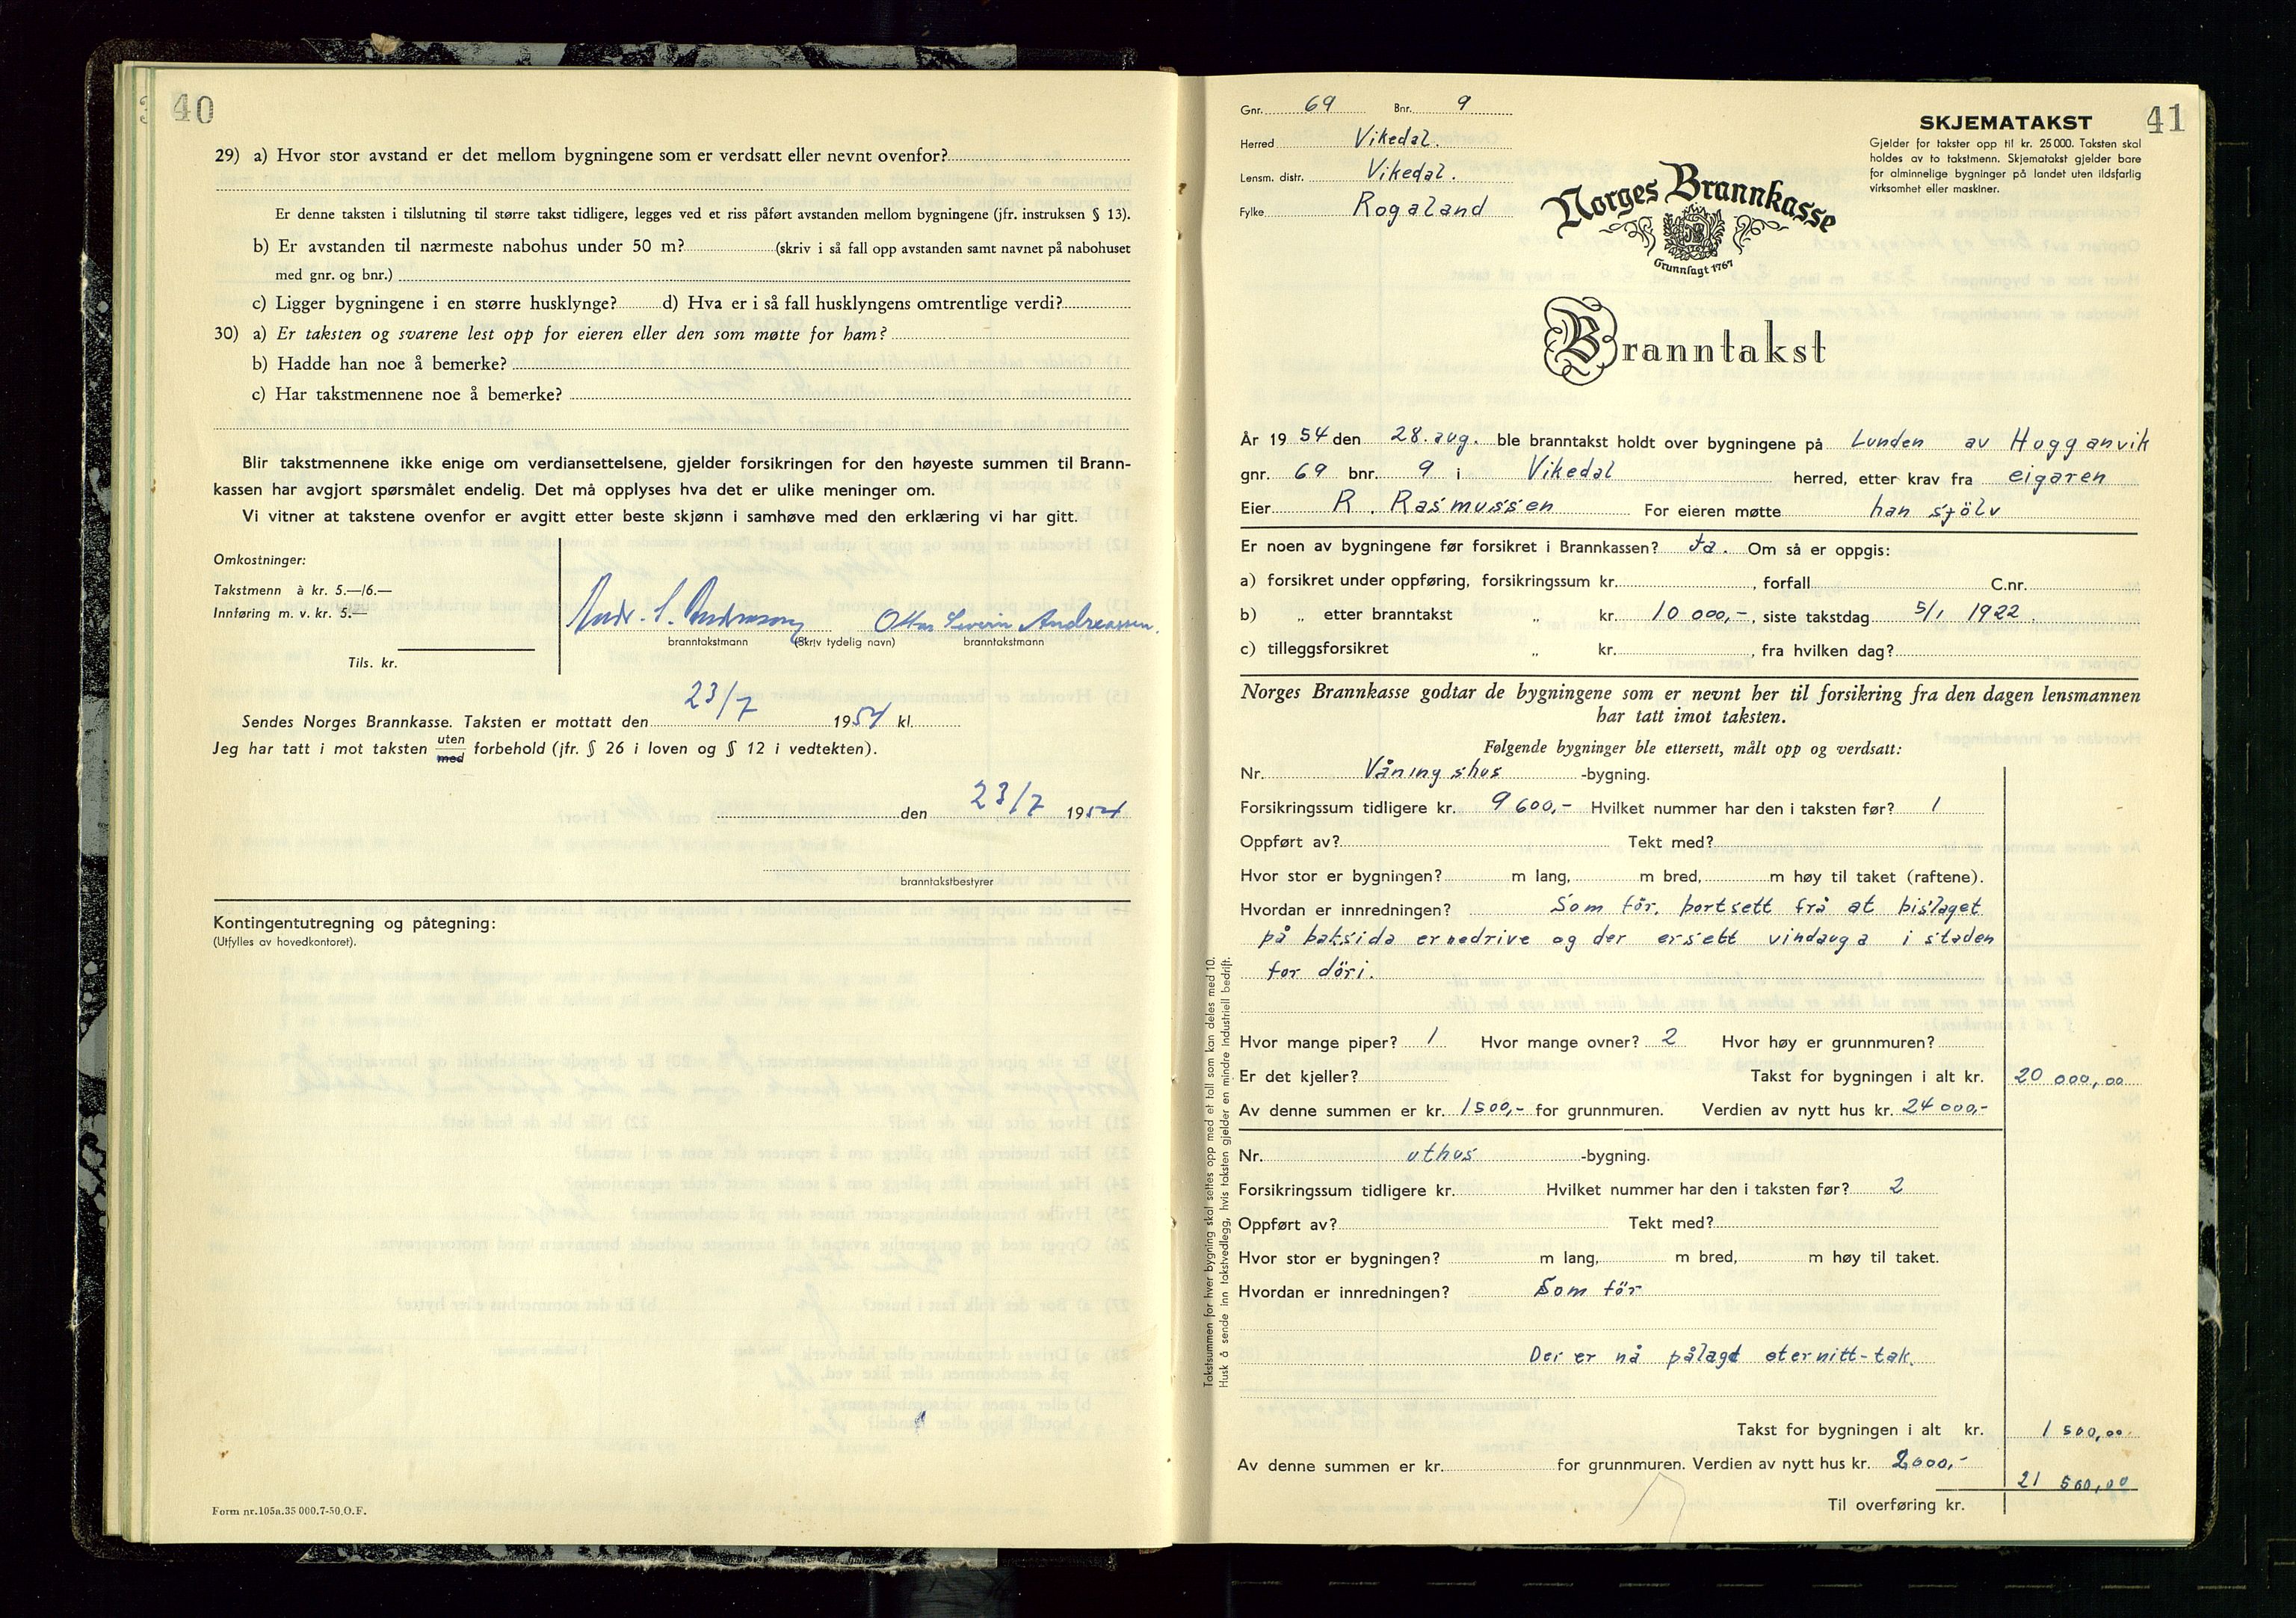 40
29) a) Hvor stor avstand er det mellom bygningene som er verdsatt eller nevnt ovenfor?
Er denne taksten i tilslutning til større takst tidligere, legges ved et riss påført avstanden mellom bygningene (jfr. instruksen § 13).
b) Er avstanden til nærmeste nabohus under 50 m? (skriv i så fall opp avstanden samt navnet på nabohuset
med gnr. og bnr.)
c) Ligger bygningene i en større husklynge? d) Hva er i så fall husklyngens omtrentlige verdi?
30) a) Er taksten og svarene lest opp for eieren eller den som møtte for ham?
b) Hadde han noe å bemerke?
c) Har takstmennene noe å bemerke?
Blir takstmennene ikke enige om verdiansettelsene, gjelder forsikringen for den høyeste summen til Brann-
kassen har avgjort spørsmålet endelig. Det må opplyses hva det er ulike meninger om.
Vi vitner at takstene ovenfor er avgitt etter beste skjønn i samhøve med den erklæring vi har gitt.
Omkostninger:
Takstmenn à kr. 5.—/6.—
Innføring m. v. kr. 5.—
Tils. kr.
Andr. S. Andreassen Otto Severin Andreassen.
branntakstmann (Skriv tydelig navn) branntakstmann
Sendes Norges Brannkasse. Taksten er mottatt den 23/7 1954 kl.
Jeg har tatt i mot taksten uten med forbehold (jfr. § 26 i loven og § 12 i vedtekten).
den 23/7 1954
branntakstbestyrer
Kontingentutregning og påtegning:
(Utfylles av hovedkontoret).
Form nr.105a.35 000.7-50.O.F.
41
Gnr. 69 Bnr. 9
Herred Vikedal.
Lensm. distr. Vikedal.
Fylke Rogaland
SKJEMATAKST
Gjelder for takster opp til kr. 25000. Taksten skal
holdes av to takstmenn. Skjematakst gjelder bare
for alminnelige bygninger på landet uten ildsfarlig
virksomhet eller maskiner.
Norges Brannkasse
Grunnlagt 1767
Branntakst
År 1954 den 28. aug. ble branntakst holdt over bygningene på Lunden av Hogganvik
gnr. 69 bnr. 9 i Vikedal herred, etter krav fra eigaren
Eier R. Rasmussen For eieren møtte han sjölv
Er noen av bygningene før forsikret i Brannkassen? Ja. Om så er oppgis:
a) forsikret under oppføring, forsikringssum kr. , forfall C.nr.
b) „ etter branntakst „ kr. 10 000,- , siste takstdag 5/1 1922.
c) tilleggsforsikret „ kr. , fra hvilken dag?
Norges Brannkasse godtar de bygningene som er nevnt her til forsikring fra den dagen lensmannen
har tatt imot taksten.
Følgende bygninger ble ettersett, målt opp og verdsatt:
Nr. Våningshus -bygning.
Forsikringssum tidligere kr. 9 600,- Hvilket nummer har den i taksten før? 1
Oppført av? Tekt med?
Hvor stor er bygningen? m lang, m bred, m høy til taket (raftene).
Hvordan er innredningen? Som för, bortsett frå at bislaget
på baksida er nedrive og der er sett vindauga i staden
for döri.
Hvor mange piper? 1 Hvor mange ovner? 2 Hvor høy er grunnmuren?
Er det kjeller? Takst for bygningen i alt kr. 20 000,00
Av denne summen er kr. 1500,- for grunnmuren. Verdien av nytt hus kr. 24 000,-
Nr. uthus -bygning.
Forsikringssum tidligere kr. Hvilket nummer har den i taksten før? 2
Oppført av? Tekt med?
Hvor stor er bygningen? m lang, m bred, m høy til taket.
Hvordan er innredningen? Som för
Der er nå pålagt eternitt-tak.
Takst for bygningen i alt kr. 1 500,00
Av denne summen er kr. for grunnmuren. Verdien av nytt hus kr. 2000,-
21 500,00
Til overføring kr.
Takstsummen for hver bygning skal settes opp med et tall som kan deles med 10.
Husk å sende inn takstvedlegg, hvis taksten gjelder en mindre industriell bedrift.